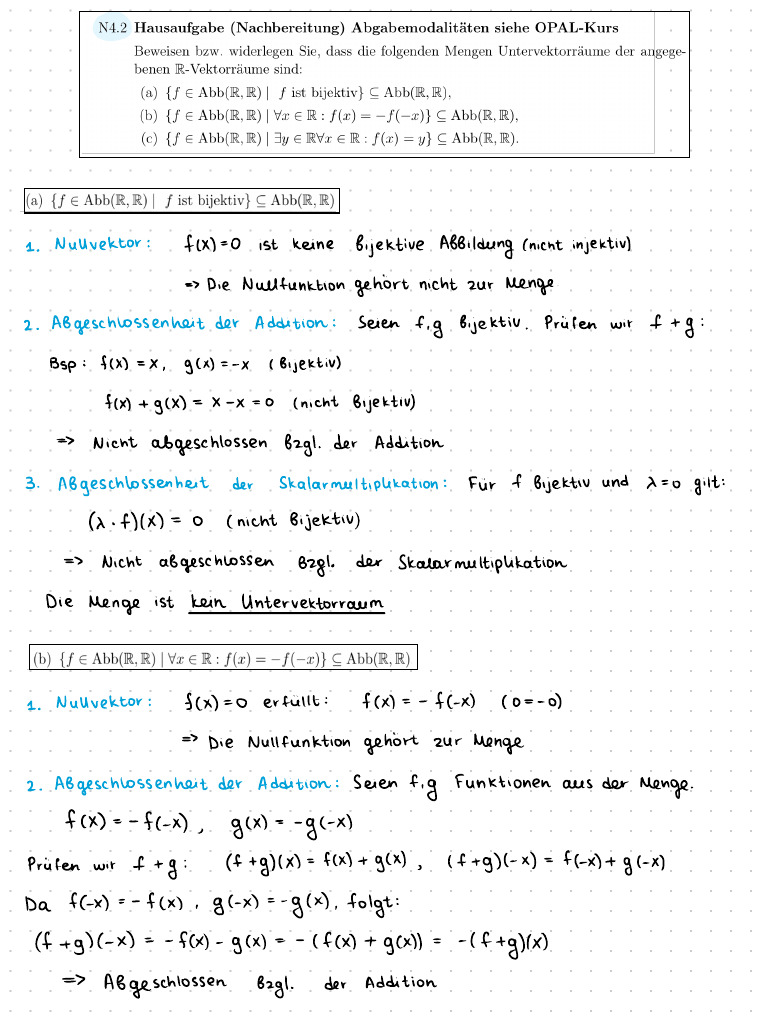 N4.2 Hausaufgabe (Nachbereitung) Abgabemodalitäten siehe OPAL-Kurs
Beweisen bzw. widerlegen Sie, dass die folgenden Mengen Untervektorräume der angege-
benen ℝ-Vektorräume sind:
(a) {f ∈ Abb(ℝ, ℝ) | f ist bijektiv} ⊆ Abb(ℝ, ℝ),
(b) {f ∈ Abb(ℝ, ℝ) | ∀x ∈ ℝ : f(x) = −f(−x)} ⊆ Abb(ℝ, ℝ),
(c) {f ∈ Abb(ℝ, ℝ) | ∃y ∈ ℝ∀x ∈ ℝ : f(x) = y} ⊆ Abb(ℝ, ℝ).
(a) {f ∈ Abb(ℝ, ℝ) | f ist bijektiv} ⊆ Abb(ℝ, ℝ)
1. Nullvektor: f(x)=0 ist keine bijektive Abbildung (nicht injektiv)
=> Die Nullfunktion gehört nicht zur Menge
2. Abgeschlossenheit der Addition: Seien f,g bijektiv. Prüfen wir f+g:
Bsp: f(x)=x, g(x)=-x (bijektiv)
f(x)+g(x) = x-x=0 (nicht bijektiv)
=> Nicht abgeschlossen bzgl. der Addition
3. Abgeschlossenheit der Skalarmultiplikation: Für f bijektiv und λ=0 gilt:
(λ·f)(x) = 0 (nicht bijektiv)
=> Nicht abgeschlossen bzgl. der Skalarmultiplikation
Die Menge ist kein Untervektorraum
(b) {f ∈ Abb(ℝ, ℝ) | ∀x ∈ ℝ : f(x) = −f(−x)} ⊆ Abb(ℝ, ℝ)
1. Nullvektor: f(x)=0 erfüllt: f(x) = - f(-x) (0=-0)
=> Die Nullfunktion gehört zur Menge
2. Abgeschlossenheit der Addition: Seien f,g Funktionen aus der Menge.
f(x) = -f(-x), g(x) = -g(-x)
Prüfen wir f+g: (f+g)(x) = f(x)+g(x), (f+g)(-x) = f(-x)+g(-x)
Da f(-x) = -f(x), g(-x) = -g(x), folgt:
(f+g)(-x) = -f(x)-g(x) = -(f(x)+g(x)) = -(f+g)(x)
=> Abgeschlossen bzgl. der Addition